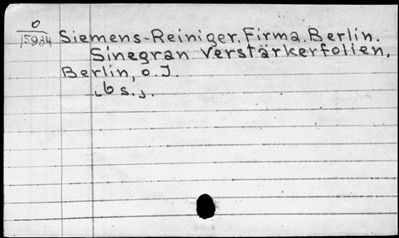 O
15934
Siemens-Reiniger. Firma. Berlin.
Sinegran Verstärkerfolien.
Berlin, o. J.
6 s.